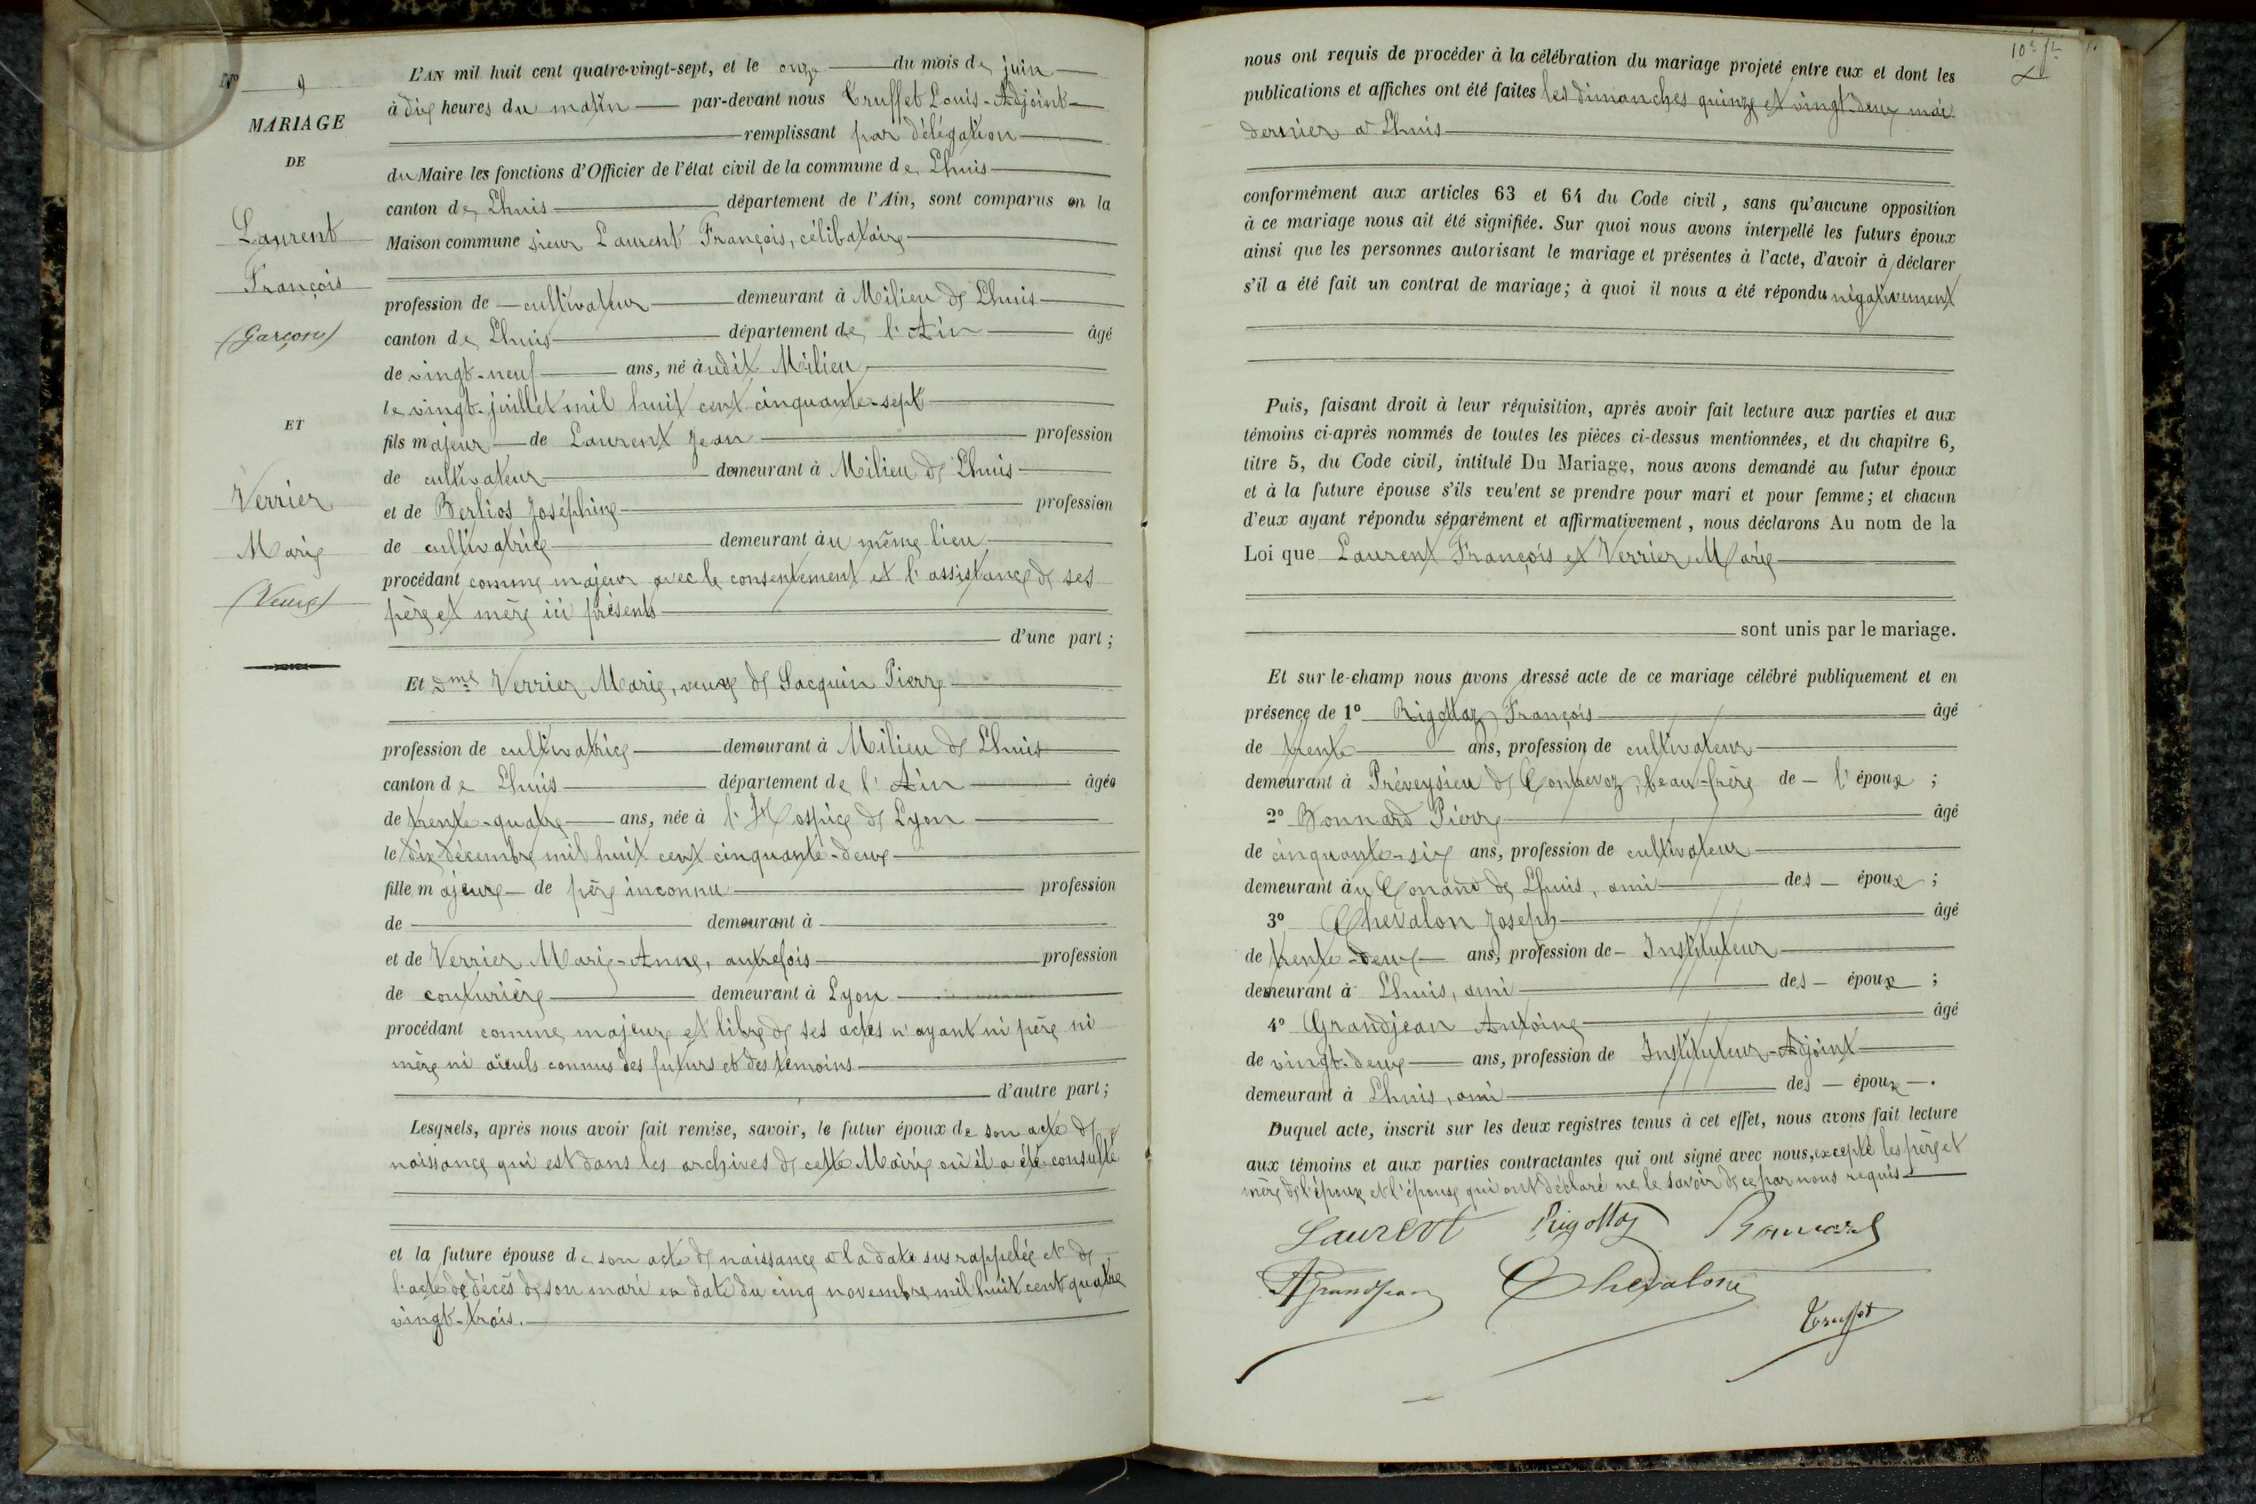 No 9
MARIAGE
DE
Laurent
François
(Garçon)
ET
Verrier
Marie
(Veuve)
L'AN mil huit cent quatre-vingt-sept, et le onze du mois de juin
à dix heures du matin par-devant nous Truffet Louis-Adjoint
remplissant par délégation
du Maire les fonctions d'Officier de l'état civil de la commune de Lhuis
canton de Lhuis département de l'Ain, sont comparus en la
Maison commune sieur Laurent François, célibataire
profession de cultivateur demeurant à Milieu de Lhuis
canton de Lhuis département de l'Ain âgé
de vingt-neuf ans, né àudit Milieu
le vingt-juillet mil huit cent cinquante-sept
fils majeur de Laurent Jean profession
de cultivateur demeurant à Milieu de Lhuis
et de Berlios Joséphine profession
de cultivatrice demeurant àu même lieu
procédant comme majeur avec le consentement et l'assistance de ses
père et mère ici présents
d'une part;
Et dme Verrier Marie, veuve de Jacquin Pierre
profession de cultivatrice demeurant à Milieu de Lhuis
canton de Lhuis département de l'Ain âgée
de trente-quatre ans, née à l'Hospice de Lyon
le dix décembre mil huit cent cinquante-deux
fille majeure de père inconnu profession
de demeurant à
et de Verrier Marie-Anne, autrefois profession
de couturière demeurant à Lyon
procédant comme majeure et libre de ses actes n'ayant ni père ni
mère ni aïeuls connus des futurs et des témoins
d'autre part;
Lesquels, après nous avoir fait remise, savoir, le futur époux de son acte de
naissance qui est dans les archives de cette Mairie où il a été consulté
et la future épouse de son acte de naissance à la date sus rappelée et de
l'acte de décès de son mari en date du cinq novembre mil huit cent quatre
vingt-trois.
10e ft
nous ont requis de procéder à la célébration du mariage projeté entre eux et dont les
publications et affiches ont été faites les dimanches quinze et vingt deux mai
dernier à Lhuis
conformément aux articles 63 et 64 du Code civil, sans qu'aucune opposition
à ce mariage nous ait été signifiée. Sur quoi nous avons interpellé les futurs époux
ainsi que les personnes autorisant le mariage et présentes à l'acte, d'avoir à déclarer
s'il a été fait un contrat de mariage; à quoi il nous a été répondu négativement
Puis, faisant droit à leur réquisition, après avoir fait lecture aux parties et aux
témoins ci-après nommés de toutes les pièces ci-dessus mentionnées, et du chapitre 6,
titre 5, du Code civil, intitulé Du Mariage, nous avons demandé au futur époux
et à la future épouse s'ils veulent se prendre pour mari et pour femme; et chacun
d'eux ayant répondu séparément et affirmativement, nous déclarons Au nom de la
Loi que Laurent François et Verrier Marie
sont unis par le mariage.
Et sur le-champ nous avons dressé acte de ce mariage célébré publiquement et en
présence de 1º Rigottaz François âgé
de trente ans, profession de cultivateur
demeurant à Préveysieu de Contrevoz, beau-frère de l'époux;
2º Bonnard Pierre âgé
de cinquante-six ans, profession de cultivateur
demeurant àu Conand de Lhuis, ami des époux;
3º Chevalon Joseph âgé
de trente-deux ans, profession de Instituteur
demeurant à Lhuis, ami des époux;
4º Grandjean Antoine âgé
de vingt-deux ans, profession de Instituteur-Adjoint
demeurant à Lhuis, ami des époux.
Duquel acte, inscrit sur les deux registres tenus à cet effet, nous avons fait lecture
aux témoins et aux parties contractantes qui ont signé avec nous, excepté les père et
mère de l'époux et l'épouse qui ont déclaré ne le savoir de ce par nous requis
Laurent Rigottaz Bonnard
AGrandjean Chevalon
Truffet